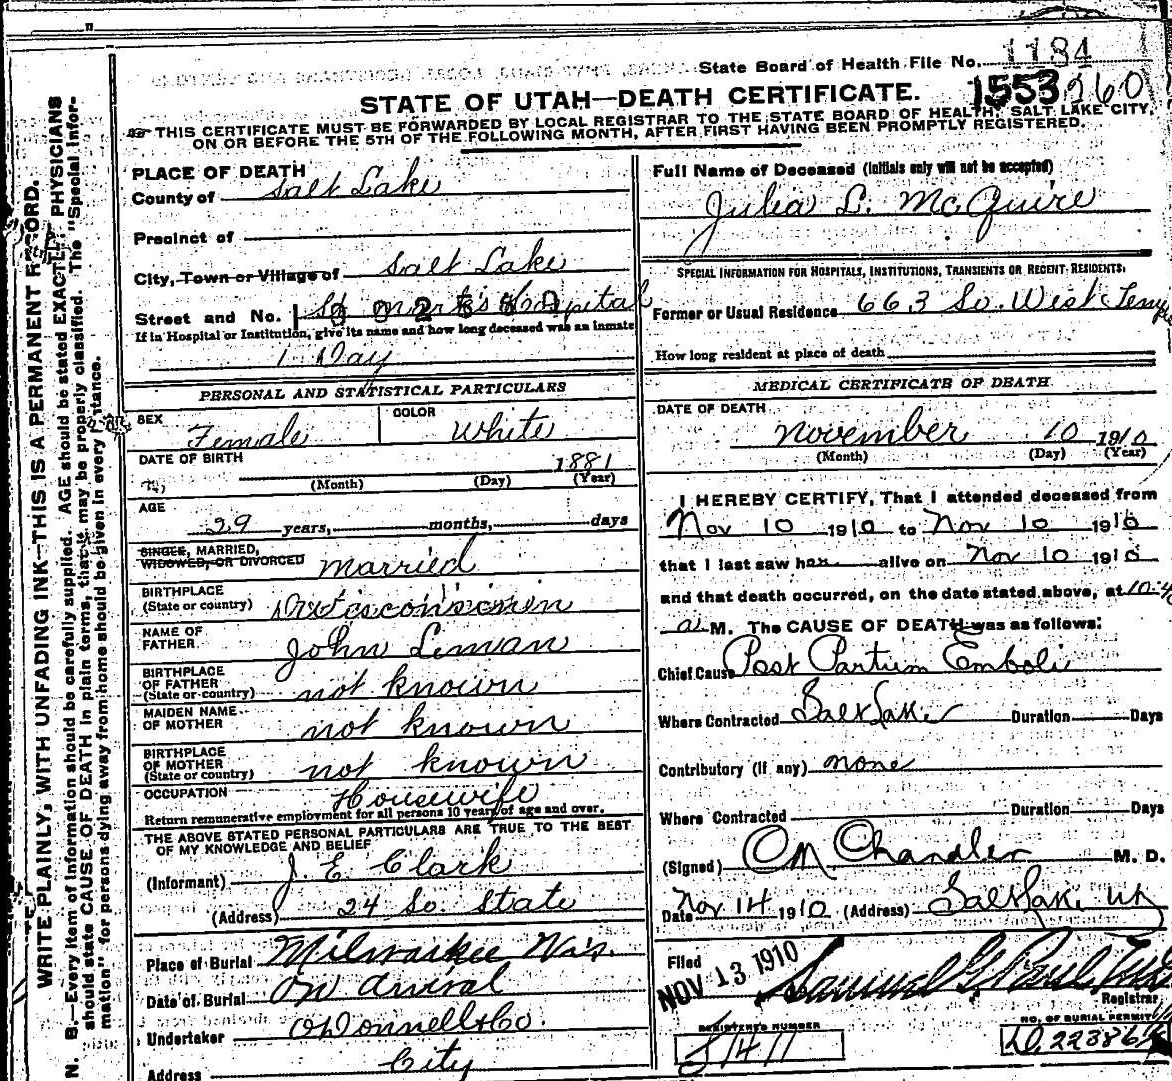 State Board of Health File No. 1184
1553 260
STATE OF UTAH—DEATH CERTIFICATE.
THIS CERTIFICATE MUST BE FORWARDED BY LOCAL REGISTRAR TO THE STATE BOARD OF HEALTH, SALT LAKE CITY,
ON OR BEFORE THE 5TH OF THE FOLLOWING MONTH, AFTER FIRST HAVING BEEN PROMPTLY REGISTERED.
WRITE PLAINLY, WITH UNFADING INK—THIS IS A PERMANENT RECORD.
N. B.—Every item of information should be carefully supplied. AGE should be stated EXACTLY. PHYSICIANS
should state CAUSE OF DEATH in plain terms, that it may be properly classified. The "Special Infor-
mation" for persons dying away from home should be given in every instance.
PLACE OF DEATH
County of Salt Lake
Precinct of
City, Town or Village of Salt Lake
Street and No. St Mark's Hospital
If in Hospital or Institution, give its name and how long deceased was an inmate
1 Day
PERSONAL AND STATISTICAL PARTICULARS
SEX Female COLOR White
DATE OF BIRTH 1881
(Month) (Day) (Year)
AGE
29 years, months, days
SINGLE, MARRIED,
WIDOWED, OR DIVORCED Married
BIRTHPLACE
(State or country)
NAME OF
FATHER John Leman
BIRTHPLACE
OF FATHER
(State or country) not known
MAIDEN NAME
OF MOTHER not known
BIRTHPLACE
OF MOTHER
(State or country) not known
OCCUPATION Housewife
Return remunerative employment for all persons 10 years of age and over.
THE ABOVE STATED PERSONAL PARTICULARS ARE TRUE TO THE BEST
OF MY KNOWLEDGE AND BELIEF
(Informant) J E Clark
(Address) 24 So State
Place of Burial Milwaukee Wis.
Date of Burial On Arrival
Undertaker O'Donnell & Co.
Address City
Full Name of Deceased (Initials only will not be accepted)
Julia L. McGuire
SPECIAL INFORMATION FOR HOSPITALS, INSTITUTIONS, TRANSIENTS OR RECENT RESIDENTS:
Former or Usual Residence 663 So. West Temple
How long resident at place of death
MEDICAL CERTIFICATE OF DEATH
DATE OF DEATH
November 10 1910
(Month) (Day) (Year)
I HEREBY CERTIFY, That I attended deceased from
Nov 10 1910 to Nov 10 1910
that I last saw her alive on Nov 10 1910
and that death occurred, on the date stated above, at 10:40
a M. The CAUSE OF DEATH was as follows:
Chief Cause Post Partum Emboli
Where Contracted Salt Lake Duration Days
Contributory (if any) none
Where Contracted Duration Days
(Signed) OM Chandler M. D.
Date Nov 14 1910 (Address) Salt Lake Ut
Filed
NOV 13 1910
Registrar
REGISTERED NUMBER
NO. OF BURIAL PERMIT